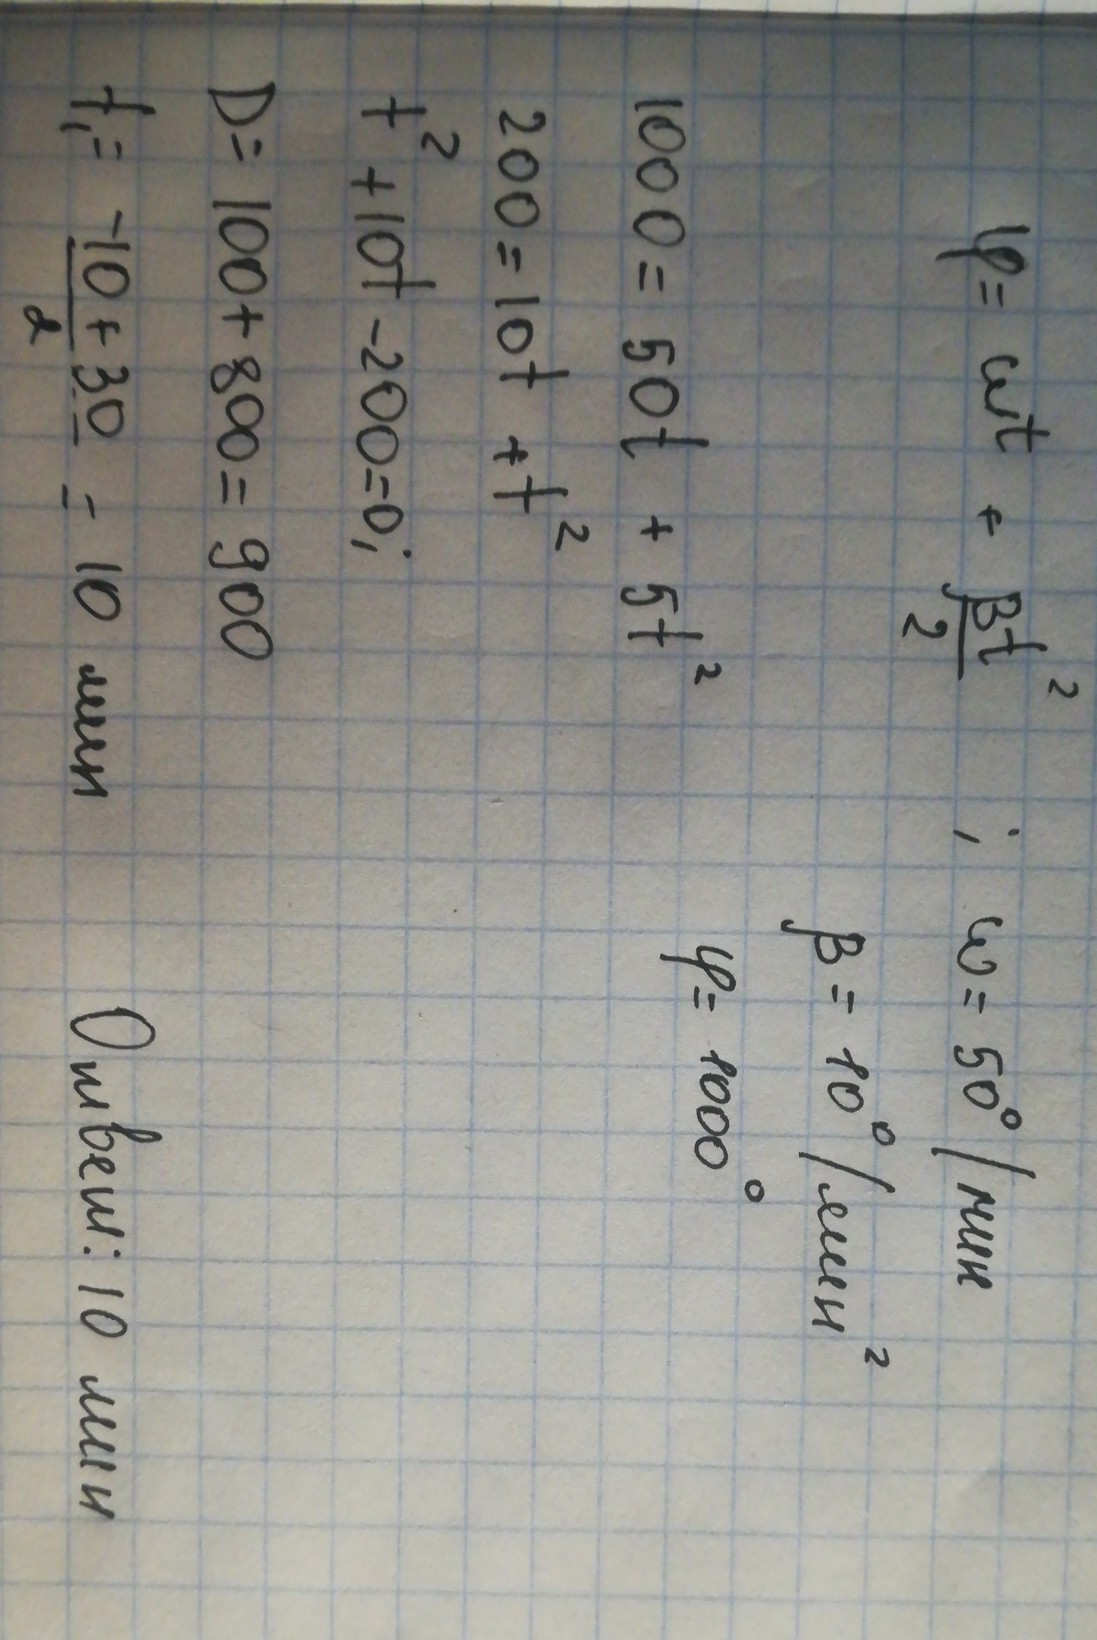 φ = ωt + βt²/2 ; ω = 50°/мин
β = 10°/мин²
φ = 1000°
1000 = 50t + 5t²
200 = 10t + t²
t² + 10t - 200 = 0;
D = 100 + 800 = 900
t₁ = (-10 + 30)/2 = 10 мин Ответ: 10 мин